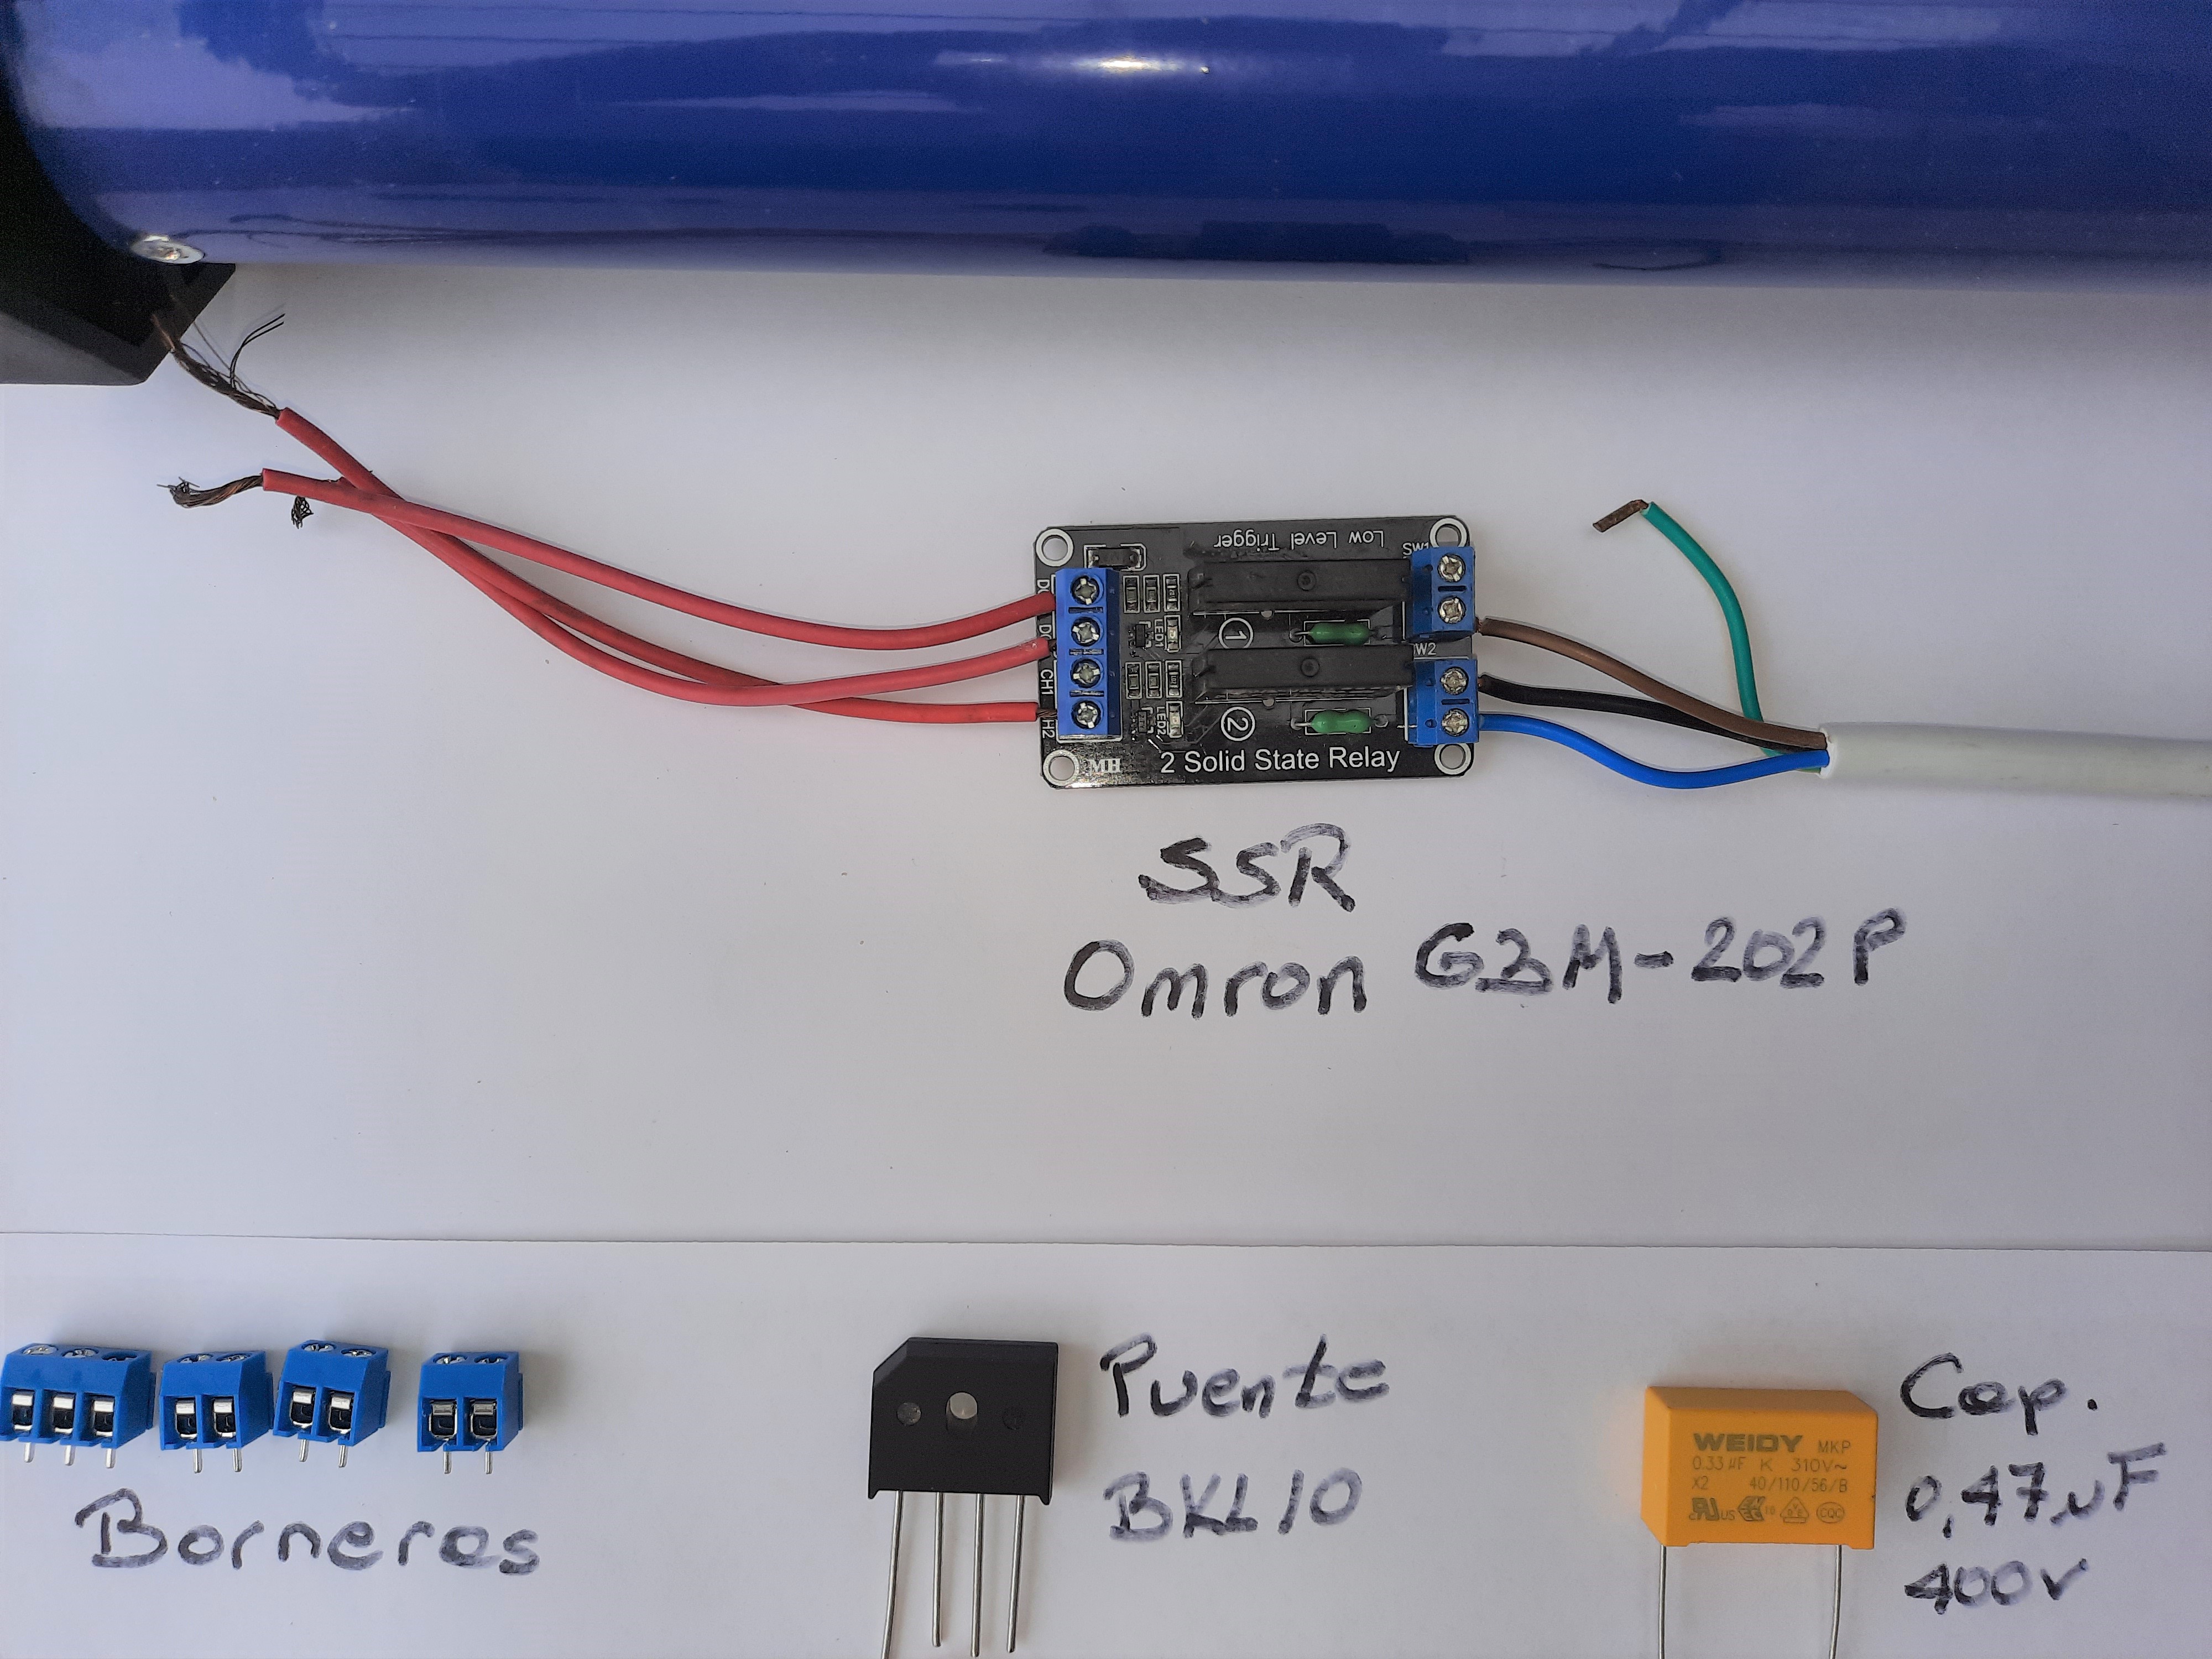 Low Level Trigger
SW1
DC
DC
CH1
H2
LED1
LED2
1
2
W2
MH
2 Solid State Relay
SSR
Omron G3M-202P
Borneros
Puente
BKL10
WEIDY MKP
0.33 µF K 310V~
X2 40/110/56/B
c UR US
CQC
Cap.
0,47uF
400v